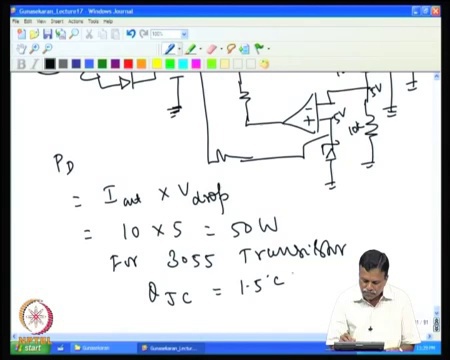 Gunasekaran_Lecture17 - Windows Journal
File Edit View Insert Actions Tools Help
100%
B I
5V
5V
10k
P_D
= I_out × V_drop
= 10 × 5 = 50W
For 3055 Transistor
θ_JC = 1.5°C
NPTEL
start
Gunasekaran
Gunasekaran_Lectu...